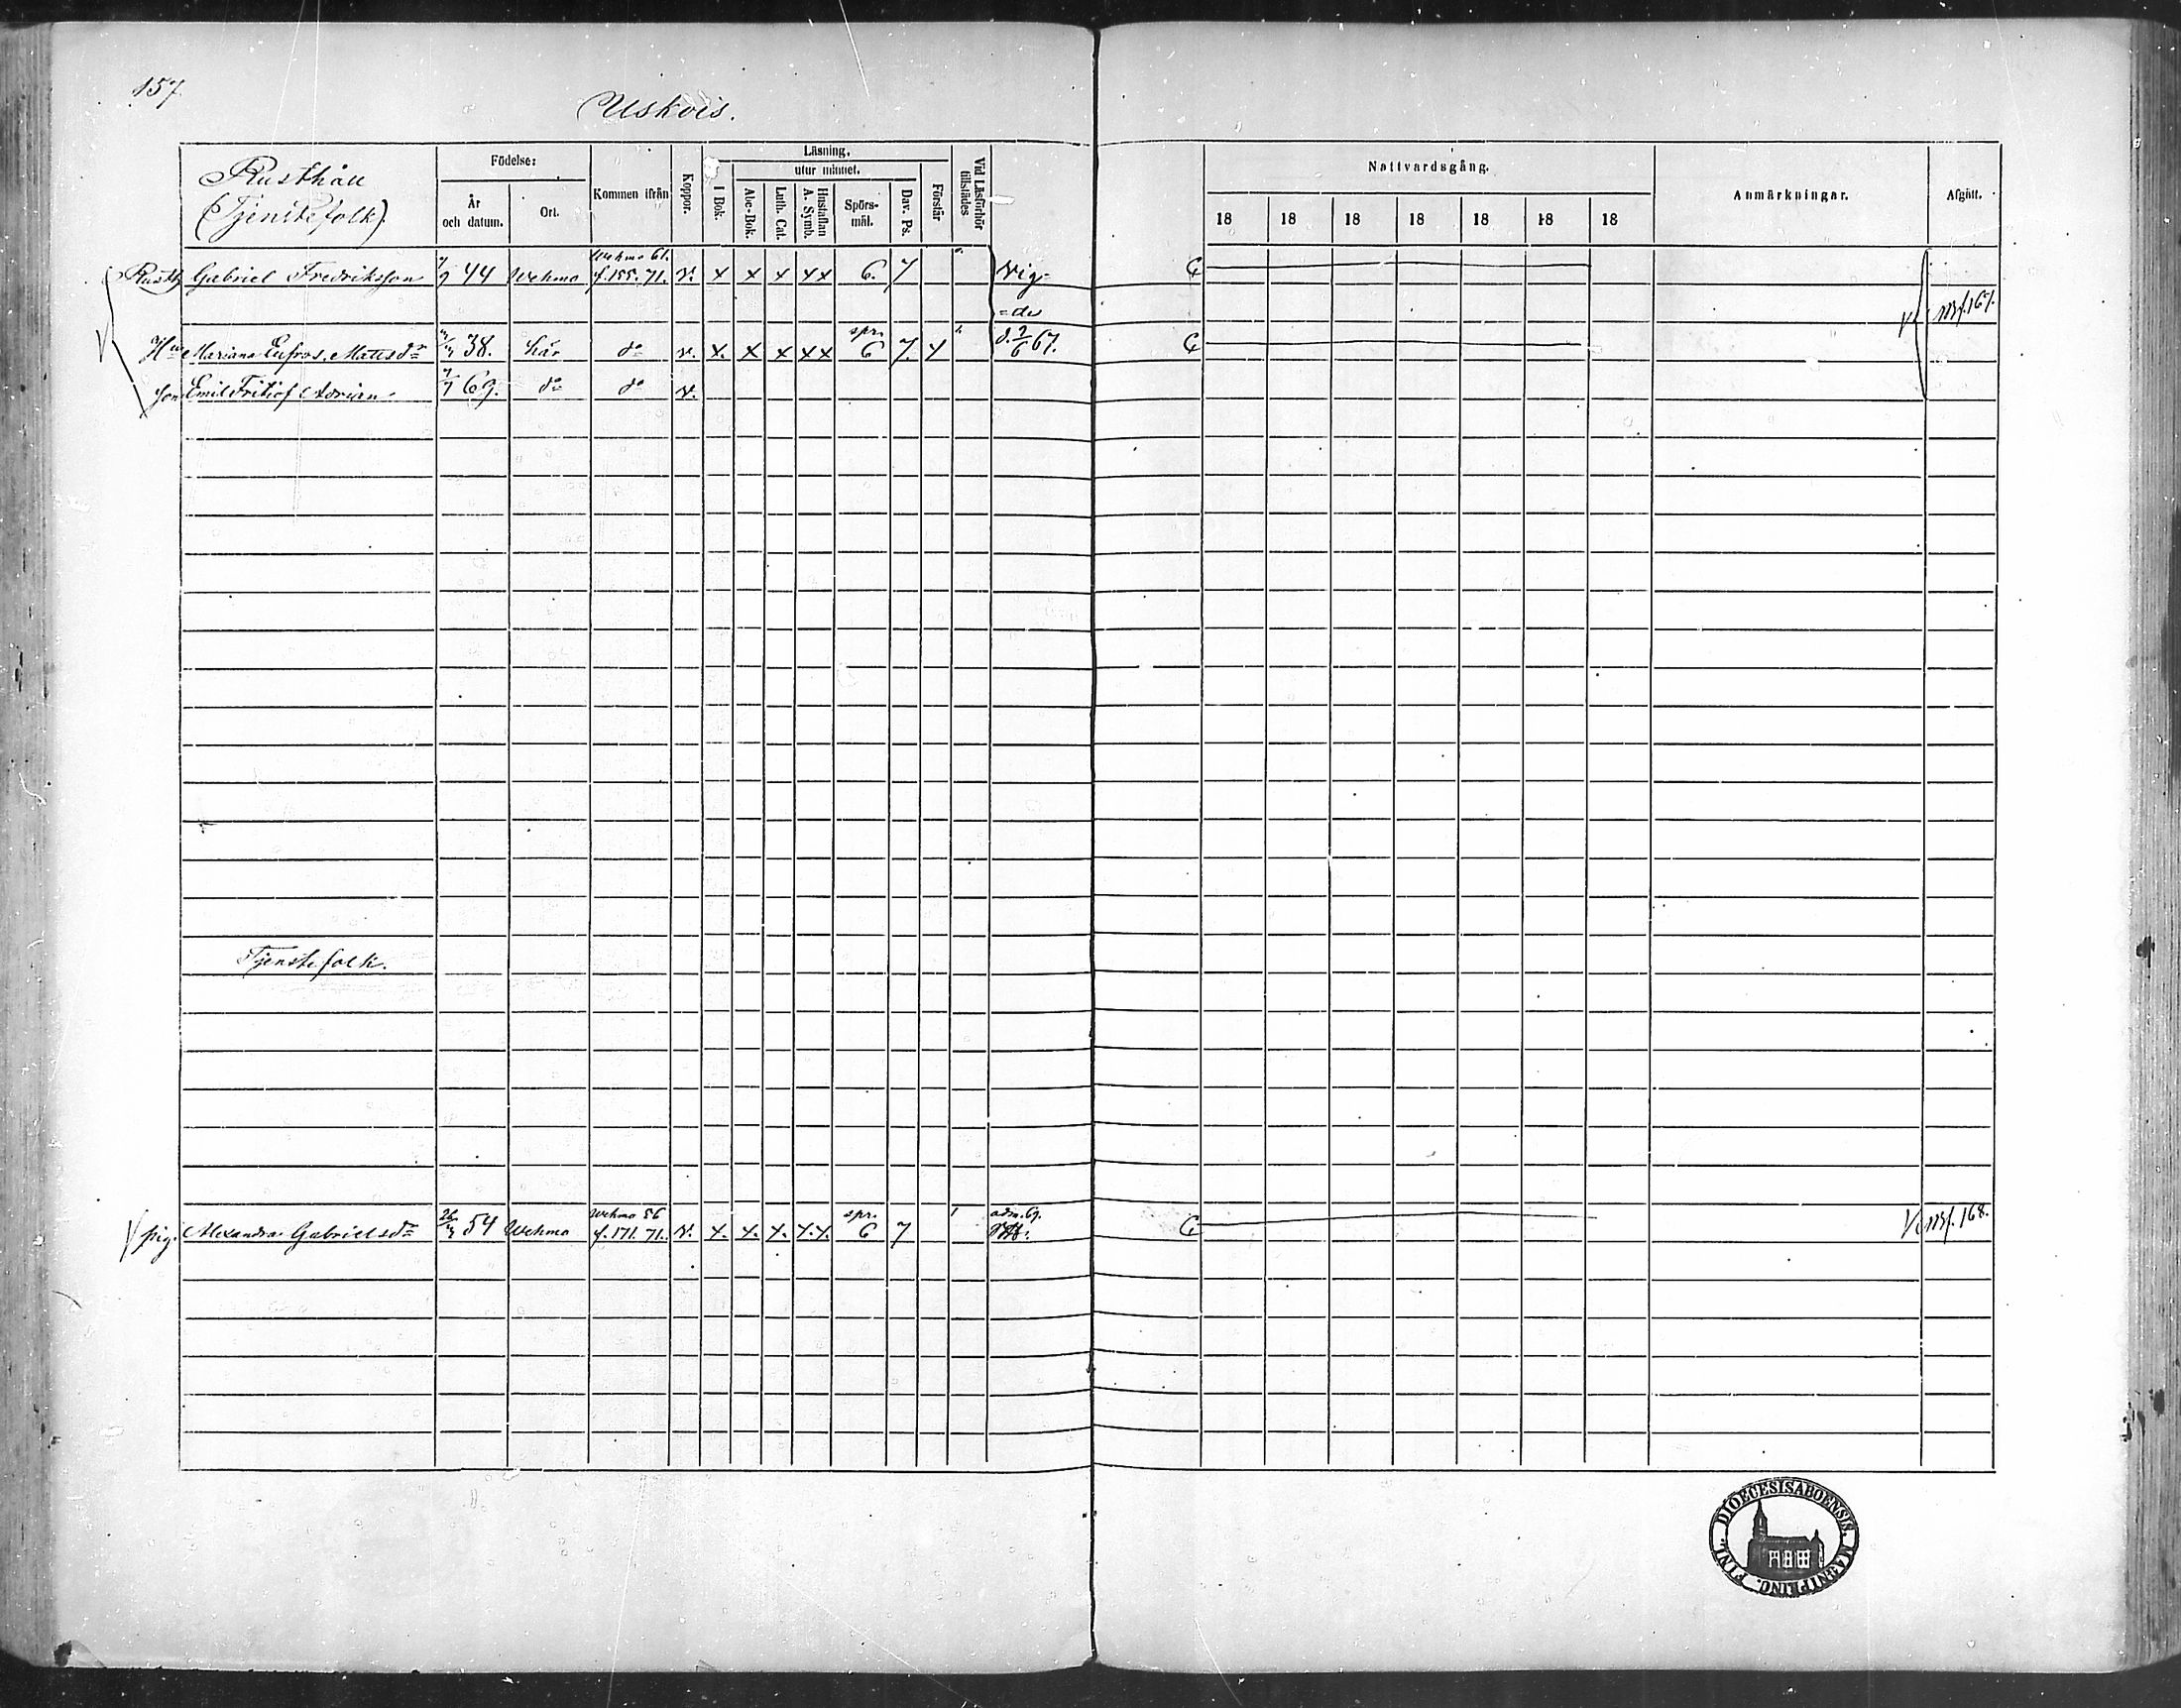 157
Uskois.
Rusthåll
(Tjenstefolk)
Födelse:
År och datum.
Ort.
Kommen ifrån
Koppor.
Läsning.
utur minnet.
I Bok.
Abc-Bok.
Luth. Cat.
Hustaflan A. Symb.
Spörs-mål.
Dav. Ps.
Förstår
Vid Läsförhör tillstädes
Nattvardsgång.
18 18 18 18 18 18 18
Anmärkningar.
Afgått.
Wehmo 61.
Rusth Gabriel Fredriksson 44 Wehmo f.155.71. v. x x x xx 6. 7 Vig-
=de
Mf.167.
spr.
Hu Mariana Eufros. Mattsdr 38. här do v. x. x x xx 6 7. d. 2/6 67.
Son Emil Fritiof Adrian 69. do do v.
Tjenstefolk.
Wehmo 56 spr. adm. 69.
pig. Alexandra Gabrielsdr 54 Wehmo f.171.71. v. x. x. x. x.x. 6 7 Mf.168.
DIOECESIS ABOENSIS. MAGNI PRINC. FINL.